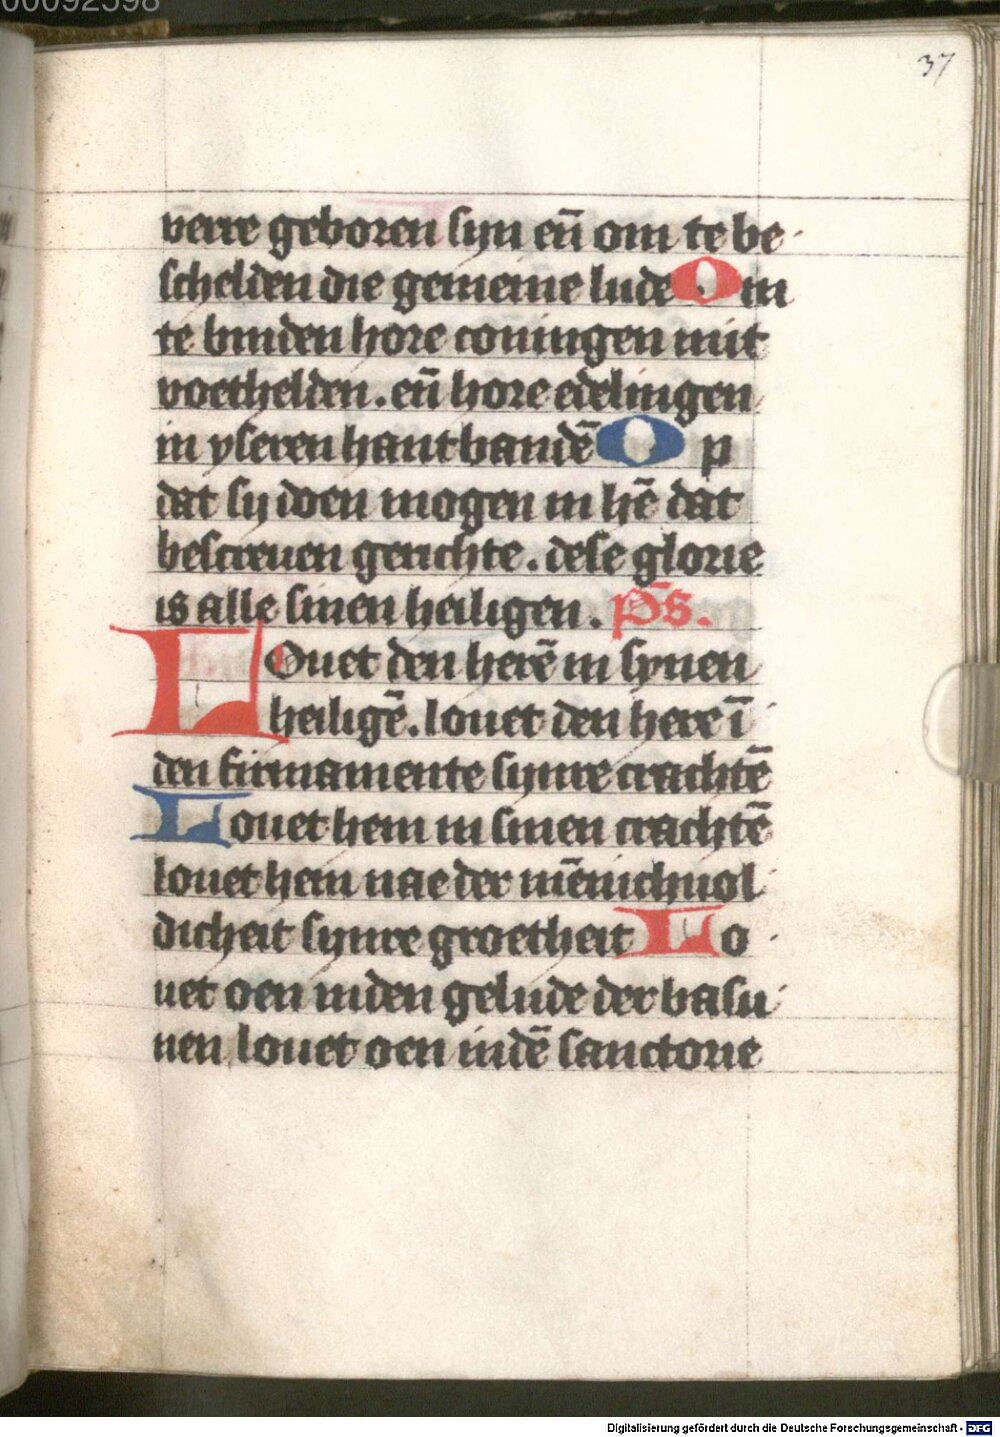 00092598
37
verre geboren syn en̄ om te be
schelden die gemeine lude Om
te binden hore coningen mit
voethelden. en̄ hore edelingen
in yseren hantbandē Op
dat sy doen mogen in hē dat
bescreuen gerichte. dese glorie
is alle sinen heiligen. p̄s.
LOuet den herē in synen
heiligē. louet den here ī
den firmamente synre crachtē
Louet hem in sinen crachtē
louet hem nae der mēnichuol
dicheit synre groetheit Lo
uet oen inden gelude der basu
nen louet oen indē sanctorie
Digitalisierung gefördert durch die Deutsche Forschungsgemeinschaft - DFG